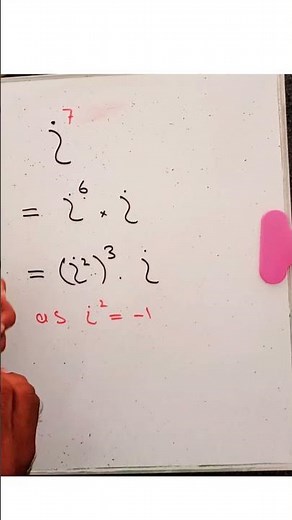 i⁷
= i⁶ × i
= (i²)³ . i
as i² = -1